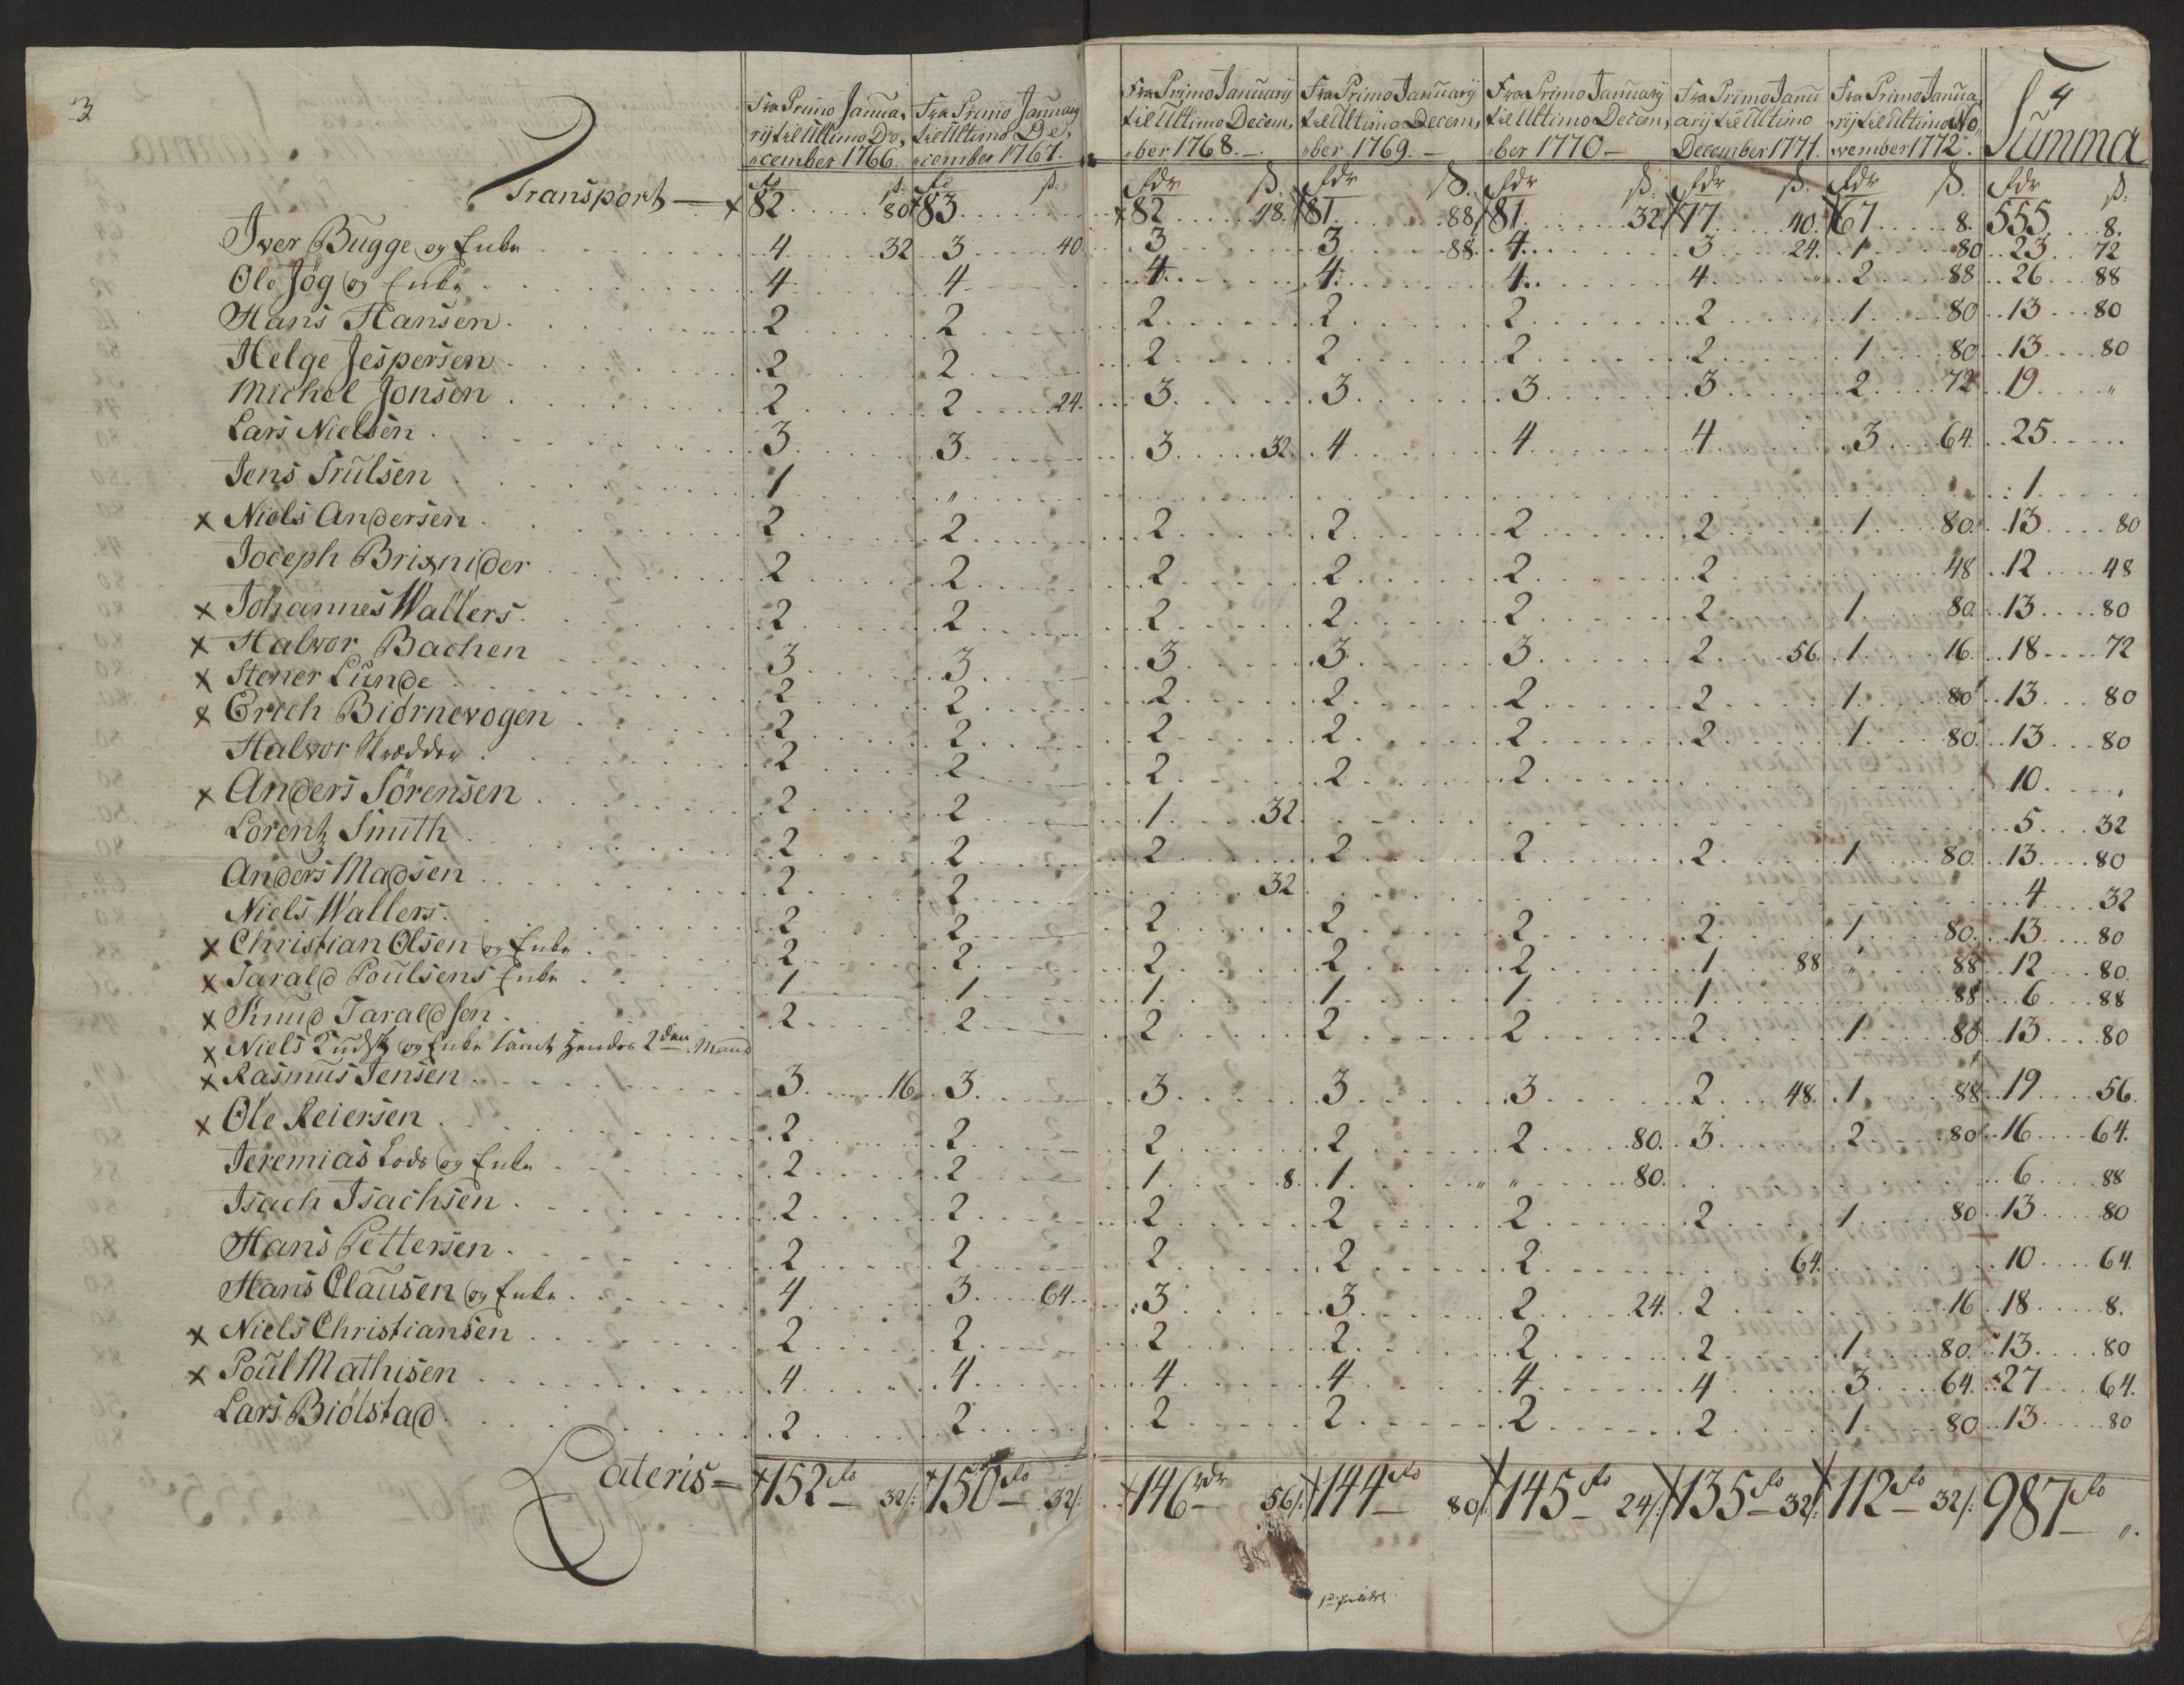 3
4
Fra Primo Janua, rij til Ultimo De, cember 1766. | Fra Primo Januarij til Ultimo De, cember 1767. | Fra Primo Januarij til Ultimo Decem, ber 1768. | Fra Primo Januarij til Ultimo Decem, ber 1769. | Fra Primo Januarij til Ultimo Decem, ber 1770 | Fra Primo Janu arij til Ultimo December 1771. | Fra Primo Janua rij til Ultimo No, vember 1772. | Summa
Transport — x 82 80 | x 83 | x 82 48. | x 81 88 | x 81 32 | x 77 40. | x 67 8. | 555 8.
Iver Bugge og Enke 4 32 | 3 40 | 3 | 3 88 | 4 | 3 24. | 1 80 | 23 72
Ole Jög og Enke 4 | 4 | 4 | 4 | 4 | 4 | 2 88 | 26 88
Hans Hansen 2 | 2 | 2 | 2 | 2 | 2 | 1 80 | 13 80
Helge Jespersen 2 | 2 | 2 | 2 | 2 | 2 | 1 80 | 13 80
Michel Jonsen 2 | 2 24. | 3 | 3 | 3 | 3 | 2 72 | 19 "
Lars Nielsen 3 | 3 | 3 32 | 4 | 4 | 4 | 3 64. | 25
Jens Trulsen 1 | " | 1
x Niels Andersen 2 | 2 | 2 | 2 | 2 | 2 | 1 80. | 13 80
Joceph Brixnider 2 | 2 | 2 | 2 | 2 | 2 | 48 | 12 48
x Johannes Wallers 2 | 2 | 2 | 2 | 2 | 2 | 1 80. | 13 80
x Halvor Bachen 3 | 3 | 3 | 3 | 3 | 2 56. | 1 16. | 18 72
x Stener Lunde 2 | 2 | 2 | 2 | 2 | 2 | 1 80 | 13 80
x Erich Biörnevogen 2 | 2 | 2 | 2 | 2 | 2 | 1 80. | 13 80
Halvor Skrædder 2 | 2 | 2 | 2 | 2 | 10
x Anders Sörensen 2 | 2 | 1 32 | 5 32
Lorentz Smith 2 | 2 | 2 | 2 | 2 | 2 | 1 80. | 13 80
Anders Madsen 2 | 2 | 32 | 4 32
Niels Wallers 2 | 2 | 2 | 2 | 2 | 2 | 1 80. | 13 80
x Christian Olsen og Enke 2 | 2 | 2 | 2 | 2 | 1 88 | " 88 | 12 80.
x Tarald Poulsens Enke 1 | 1 | 1 | 1 | 1 | 1 | 88 | 6 88
x Knud Taraldsen 2 | 2 | 2 | 2 | 2 | 2 | 1 80 | 13 80
x Niels Tudsk og Enke samt hendes 2den Mand
x Rasmus Jensen 3 16 | 3 | 3 | 3 | 3 | 2 48. | 1 88 | 19 56.
x Ole Reiersen 2 | 2 | 2 | 2 | 2 80. | 3 | 2 80 | 16 64.
Jeremias Lods og Enke 2 | 2 | 1 8. | 1 " | " 80. | 6 88
Isach Isachsen 2 | 2 | 2 | 2 | 2 | 2 | 1 80 | 13 80
Hans Pettersen 2 | 2 | 2 | 2 | 2 | 64. | 10 64.
Hans Clausen og Enke 4 | 3 64 | 3 | 3 | 2 24. | 2 | 16 | 18 8.
x Niels Christiansen 2 | 2 | 2 | 2 | 2 | 2 | 1 80. | 13 80
x Poul Mathisen 4 | 4 | 4 | 4 | 4 | 4 | 3 64. | 27 64.
Lars Biölstad 2 | 2 | 2 | 2 | 2 | 2 | 1 80 | 13 80
Lateris = x 152 32 | x 150 32 | x 146 56 | x 144 80 | x 145 24 | x 135 32 | x 112 32 | 987 ".